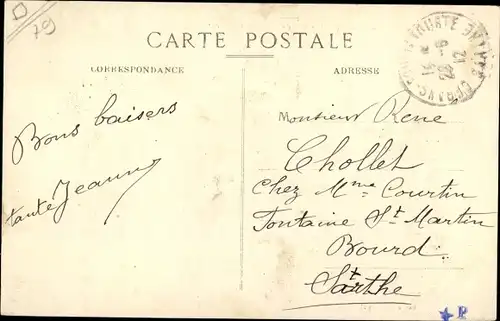 79
CARTE POSTALE
CORRESPONDANCE
ADRESSE
Bons baisers
tante Jeanne
Monsieur René
Chollet
Chez Mme Courtin
Fontaine St Martin
Bourd
Sarthe
P